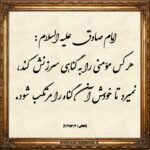 امام صادق علیه السلام :
هر کس مؤمنی را به گناهی سرزنش کند،
نمیرد تا خودش آن گناه را مرتکب شود.